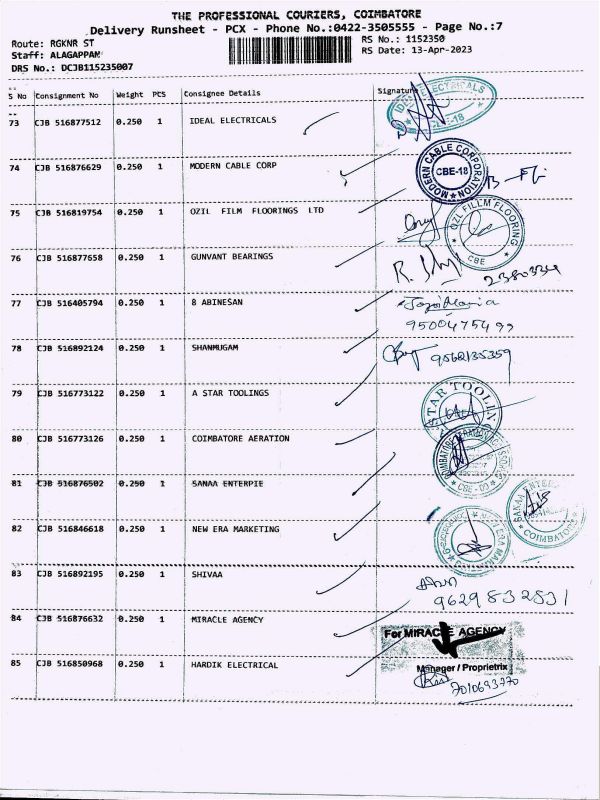 THE PROFESSIONAL COURIERS, COIMBATORE
Delivery Runsheet - PCX - Phone No.:0422-3505555 - Page No.:7
Route: RGKNR ST
RS No.: 1152350
Staff: ALAGAPPAN
RS Date: 13-Apr-2023
DRS No.: DCJB115235007
S No Consignment No Weight PCS Consignee Details Signature
73 CJB 516877512 0.250 1 IDEAL ELECTRICALS
74 CJB 516876629 0.250 1 MODERN CABLE CORP
MODERN CABLE CORPORATION
CBE-18
75 CJB 516819754 0.250 1 OZIL FILM FLOORINGS LTD
OZL FILLM FLOORING
CBE
76 CJB 516877658 0.250 1 GUNVANT BEARINGS
77 CJB 516405794 0.250 1 8 ABINESAN
9500475499
78 CJB 516892124 0.250 1 SHANMUGAM
79 CJB 516773122 0.250 1 A STAR TOOLINGS
STAR TOOLIN
80 CJB 516773126 0.250 1 COIMBATORE AERATION
81 CJB 516876502 0.250 1 SANAA ENTERPIE
COIMBATORE
82 CJB 516846618 0.250 1 NEW ERA MARKETING
83 CJB 516892195 0.250 1 SHIVAA
9629832531
84 CJB 516876632 0.250 1 MIRACLE AGENCY
For MIRACLE AGENCY
85 CJB 516850968 0.250 1 HARDIK ELECTRICAL
Manager / Proprietrix